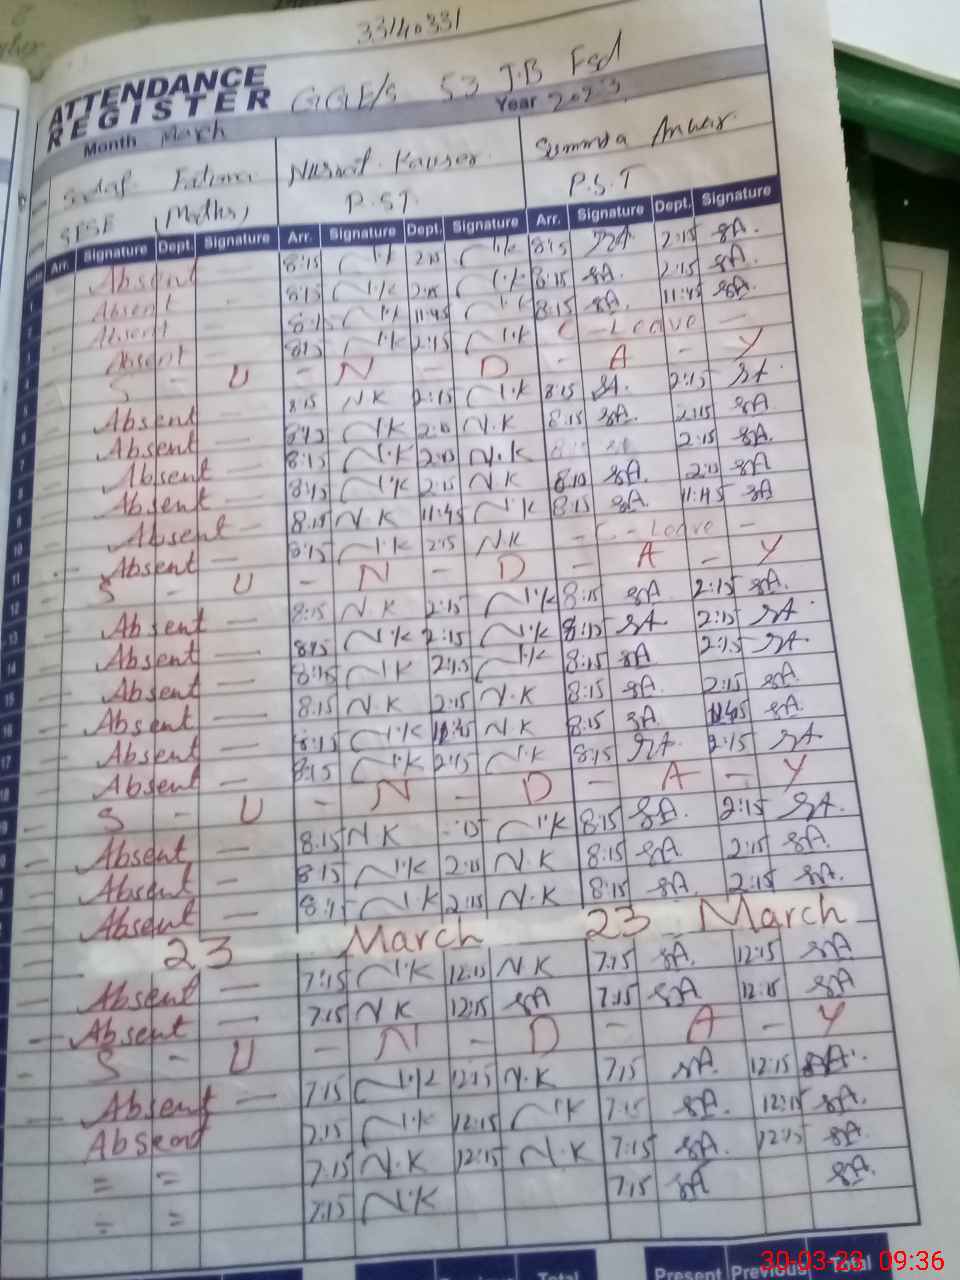 33140331
ATTENDANCE
REGISTER GGE/S 53 J.B Fsd
Month March Year 2023
Sadaf Fatima Nusrat Kauser Summra Anwar
SESE (Maths) P.S.T P.S.T
Arr. Signature Dept. Signature Arr. Signature Dept. Signature Arr. Signature Dept. Signature
1 Absent — 8:15 N.K 2:15 N.K 8:15 SA 2:15 SA.
2 Absent — 8:15 N.K 2:15 N.K 8:15 SA. 2:15 SA.
Absent — 8:15 N.K 11:45 N.K 8:15 SA. 11:45 SA.
4 Absent — 8:15 N.K 2:15 N.K C - Leave —
5 S - U - N - D - A - Y
6 Absent — 8:15 N.K 2:15 N.K 8:15 SA. 2:15 SA.
7 Absent — 8:15 N.K N.K 8:15 SA. 2:15 SA.
8 Absent — 8:15 N.K N.K 2:15 SA.
9 Absent — 8:15 N.K 2:15 N.K 8:10 SA. SA
10 Absent — 8:15 N.K 11:45 N.K 8:15 SA. 11:45 SA
11 Absent — 8:15 N.K 2:15 N.K - C - Leave —
12 S - U - N - D - A - Y
13 Absent — 8:15 N.K 2:15 N.K 8:15 SA 2:15 SA.
14 Absent — 8:15 N.K 2:15 N.K 8:15 SA 2:15 SA.
15 Absent — 8:15 N.K 2:15 N.K 8:15 SA 2:15 SA
16 Absent — 8:15 N.K 2:15 N.K 8:15 SA. 2:15 SA.
17 Absent — 8:15 N.K N.K 8:15 SA. 11:45 SA.
18 Absent — 8:15 N.K 2:15 N.K 8:15 SA. 2:15 SA
S - U - N - D - A - Y
Absent — 8:15 N.K N.K 8:15 SA. 2:15 SA.
Absent — 8:15 N.K N.K 8:15 SA. 2:15 SA.
Absent — 8:15 N.K 2:15 N.K 8:15 SA. 2:15 SA.
23 March 23 March
Absent — 7:15 N.K 12:15 N.K 7:15 SA. 12:15 SA
Absent — 7:15 N.K 12:15 SA 7:15 SA 12:15 SA
S - U - N - D - A - Y
Absent — 7:15 N.K 12:15 N.K 7:15 SA. 12:15 SA.
Absent 7:15 N.K 12:15 N.K 7:15 SA. 12:15 SA.
= = 7:15 N.K 12:15 N.K 7:15 SA. 12:15 SA.
= = 7:15 N.K 7:15 SA SA.
Total Present Previous Total
30-03-23 09:36